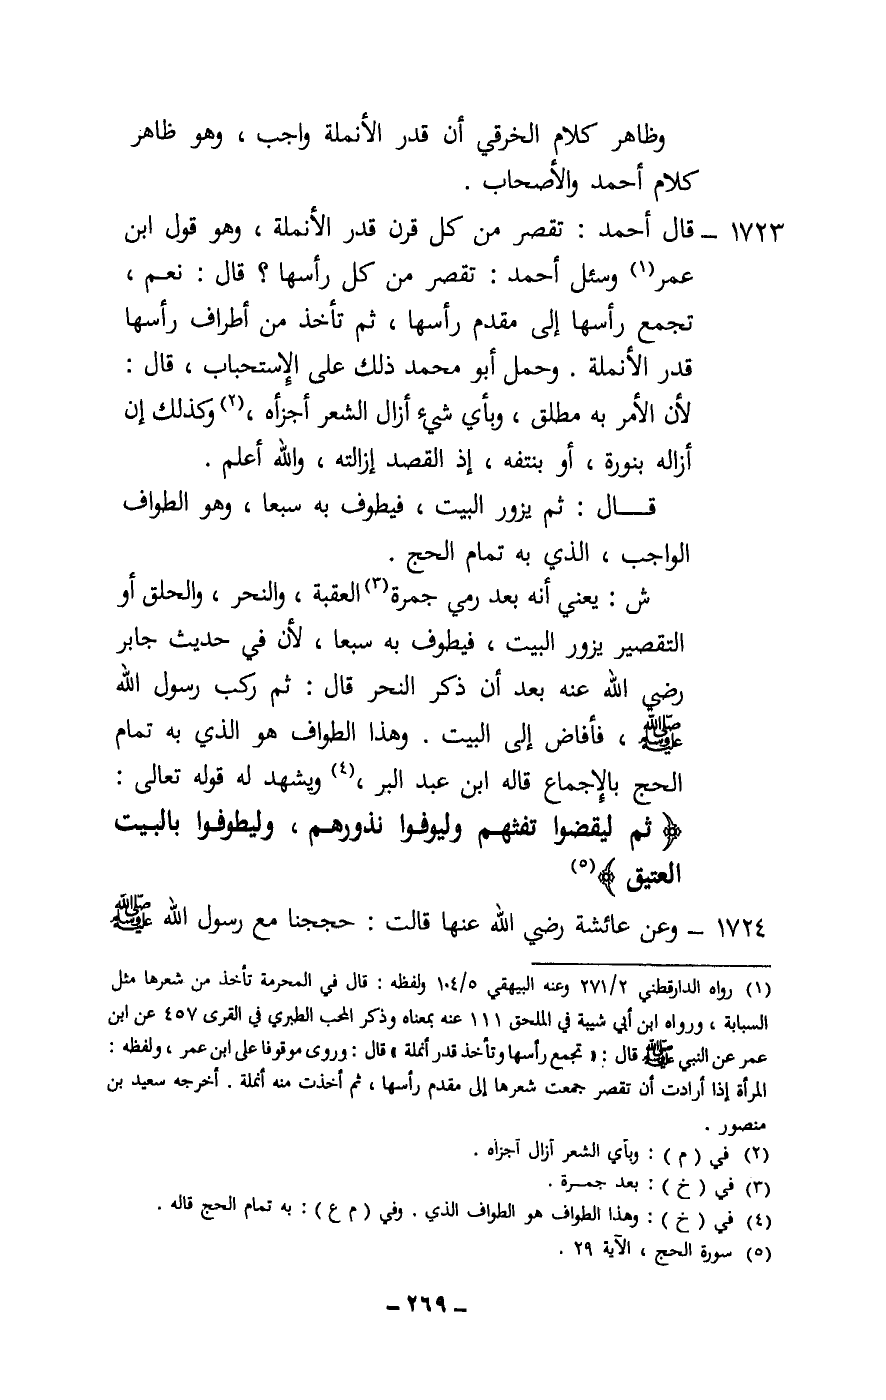 وظاهر كلام الخرقي أن قدر الأنملة واجب ، وهو ظاهر
كلام أحمد والأصحاب .
١٧٢٣ ــ قال أحمد : تقصر من كل قرن قدر الأنملة ، وهو قول ابن
عمر(١) وسئل أحمد : تقصر من كل رأسها ؟ قال : نعم ،
تجمع رأسها إلى مقدم رأسها ، ثم تأخذ من أطراف رأسها
قدر الأنملة . وحمل أبو محمد ذلك على الإستحباب ، قال :
لأن الأمر به مطلق ، وبأي شيء أزال الشعر أجزأه ،(٢) وكذلك إن
أزاله بنورة ، أو بنتفه ، إذ القصد إزالته ، والله أعلم .
قـــال : ثم يزور البيت ، فيطوف به سبعا ، وهو الطواف
الواجب ، الذي به تمام الحج .
ش : يعني أنه بعد رمي جمرة(٣) العقبة ، والنحر ، والحلق أو
التقصير يزور البيت ، فيطوف به سبعا ، لأن في حديث جابر
رضي الله عنه بعد أن ذكر النحر قال : ثم ركب رسول الله
ﷺ ، فأفاض إلى البيت . وهذا الطواف هو الذي به تمام
الحج بالإجماع قاله ابن عبد البر ،(٤) ويشهد له قوله تعالى :
﴿ ثم ليقضوا تفثهم وليوفوا نذورهم ، وليطوفوا بالبيت
العتيق ﴾(٥)
١٧٢٤ ــ وعن عائشة رضي الله عنها قالت : حججنا مع رسول الله ﷺ
(١) رواه الدارقطني ٢٧١/٢ وعنه البيهقي ١٠٤/٥ ولفظه : قال في المحرمة تأخذ من شعرها مثل
السبابة ، ورواه ابن أبي شيبة في الملحق ١١١ عنه بمعناه وذكر المحب الطبري في القرى ٤٥٧ عن ابن
عمر عن النبي ﷺ قال : « تجمع رأسها وتأخذ قدر أنملة » قال : وروى موقوفا على ابن عمر ، ولفظه :
المرأة إذا أرادت أن تقصر جمعت شعرها إلى مقدم رأسها ، ثم أخذت منه أنملة . أخرجه سعيد بن
منصور .
(٢) في ( م ) : وبأي الشعر أزال أجزأه .
(٣) في ( خ ) : بعد جمـرة .
(٤) في ( خ ) : وهذا الطواف هو الطواف الذي . وفي ( م ع ) : به تمام الحج قاله .
(٥) سورة الحج ، الآية ٢٩ .
ــ ٢٦٩ ــ